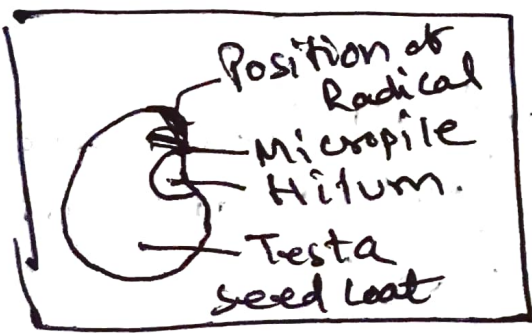 Position of
Radical
Micropile
Hilum.
Testa
seed Coat